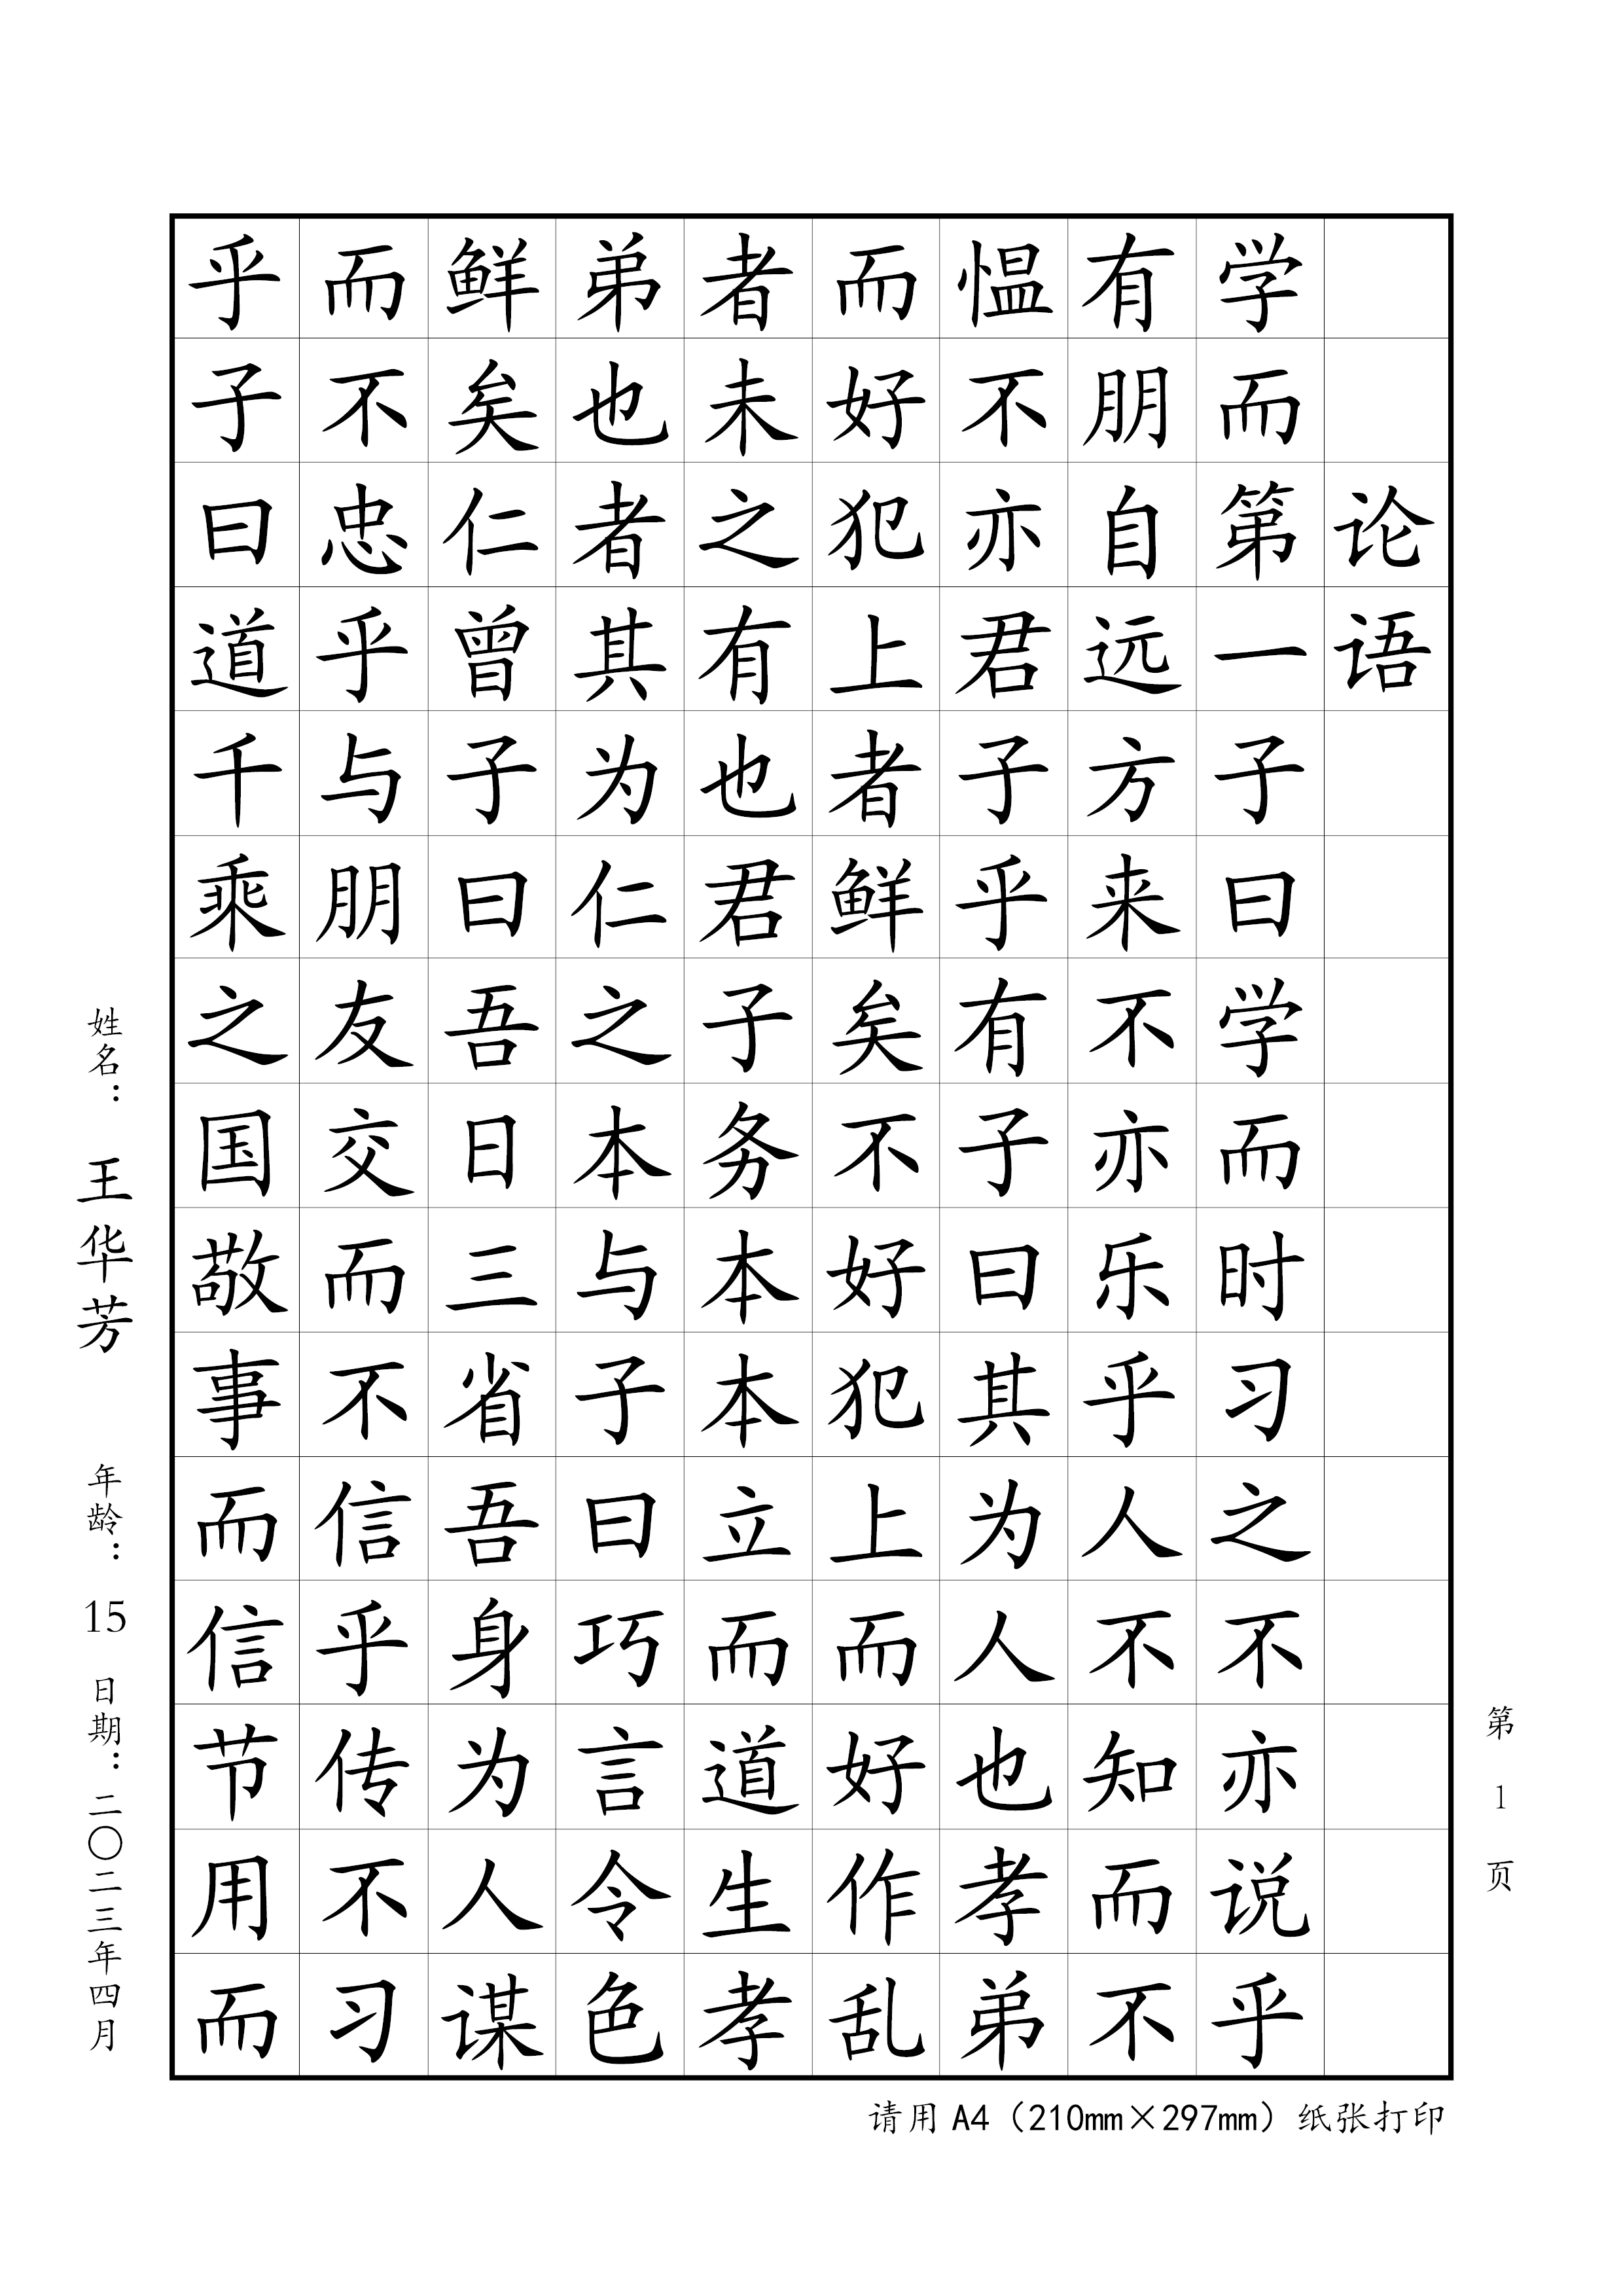 论语
学而第一子曰学而时习之不亦说乎
有朋自远方来不亦乐乎人不知而不
愠不亦君子乎有子曰其为人也孝弟
而好犯上者鲜矣不好犯上而好作乱
者未之有也君子务本本立而道生孝
弟也者其为仁之本与子曰巧言令色
鲜矣仁曾子曰吾日三省吾身为人谋
而不忠乎与朋友交而不信乎传不习
乎子曰道千乘之国敬事而信节用而
姓名：王华芳 年龄：15 日期：二〇二三年四月
第1页
请用A4（210mm×297mm）纸张打印